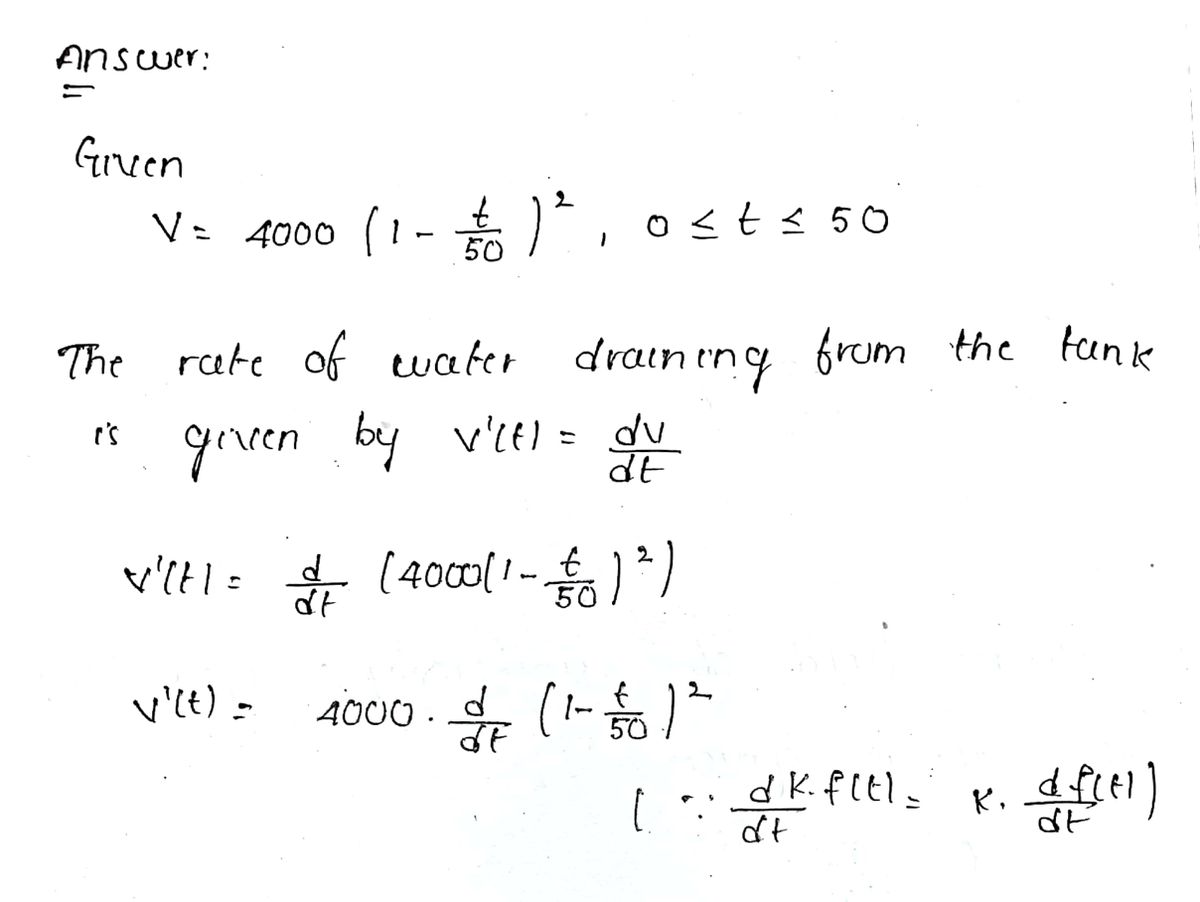 Answer:
Given
V = 4000 (1 - t/50)², 0 ≤ t ≤ 50
The rate of water draining from the tank
is given by v'(t) = dv/dt
v'(t) = d/dt (4000(1 - t/50)²)
v'(t) = 4000 . d/dt (1 - t/50)²
(∵ d/dt K. f(t) = K. d f(t)/dt)